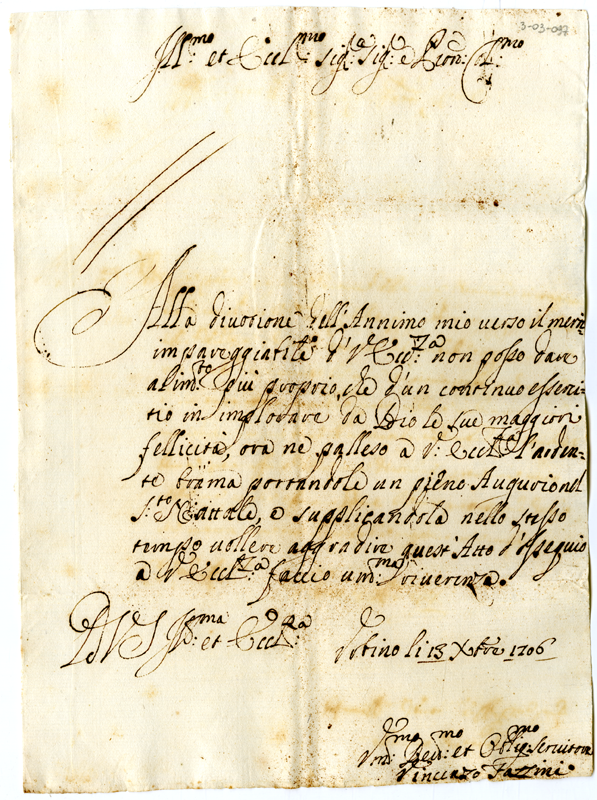 3-03-097
Ill:mo et Eccl:mo Sig:r Sig:r e Pron: Col:mo
Alla divotione dell'Annimo mio verso il merito
impareggiabile d'V: Ecc:za non posso dare
alim:to più proprio, che d'un continuo esserci-
tio in implorare da Dio le sue maggiori
fellicità, ora ne palleso à V: Eccl:za l'arden-
te brama portandole un pieno Augurio nel
S:to Nattale, e supplicandola nello stesso
tempo vollere aggradire quest'Atto d'ossequio
à V: Eccl:za faccio um:ma riverenza.
D V S Ill:ma et Eccl:za
li 13 Xbre 1706
Um:mo Dev:mo et Oblig:mo Servitore
Vincenzo Fazzini